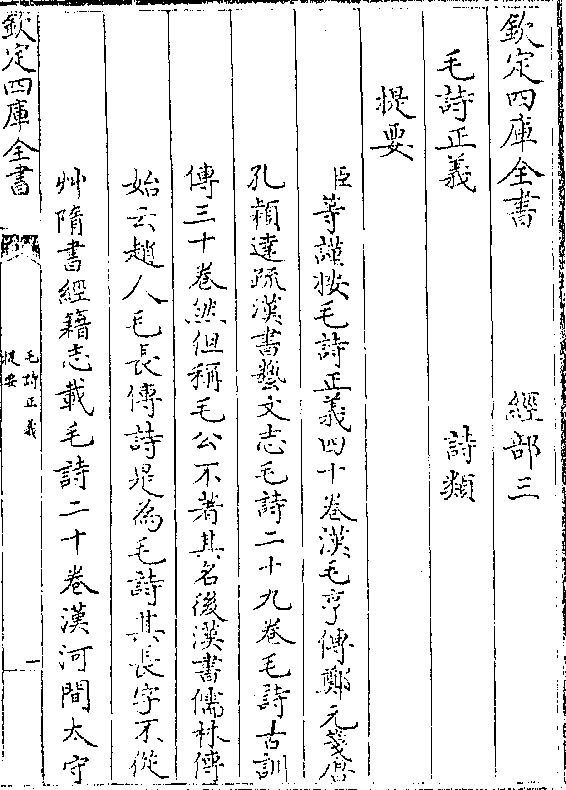 欽定四庫全書　經部三
毛詩正義　詩類
提要
臣等謹按毛詩正義四十卷漢毛亨傳鄭元箋唐
孔穎達疏漢書藝文志毛詩二十九卷毛詩古訓
傳三十卷然但稱毛公不著其名後漢書儒林傳
始云趙人毛長傳詩是為毛詩其長字不從
艸隋書經籍志載毛詩二十卷漢河間太守
欽定四庫全書
毛詩正義
提要
一